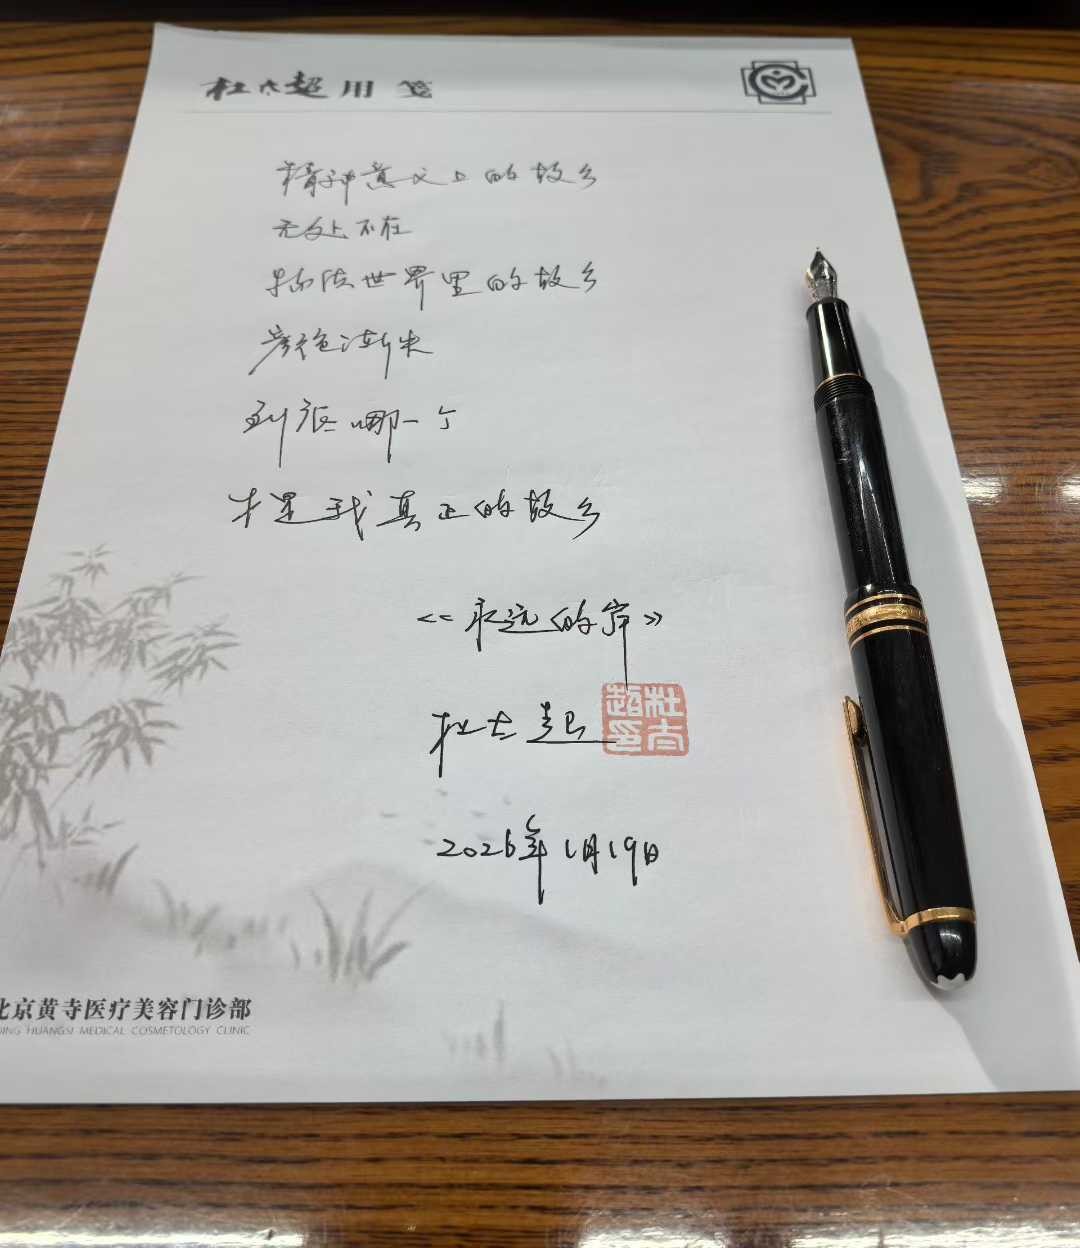 杜太超用笺
精神意义上的故乡
无处不在
物质世界里的故乡
景色渐失
到底哪一个
才是我真正的故乡
<<永远的岸》
杜太超
杜太超印
2026年1月19日
北京黄寺医疗美容门诊部
JING HUANGSI MEDICAL COSMETOLOGY CLINIC